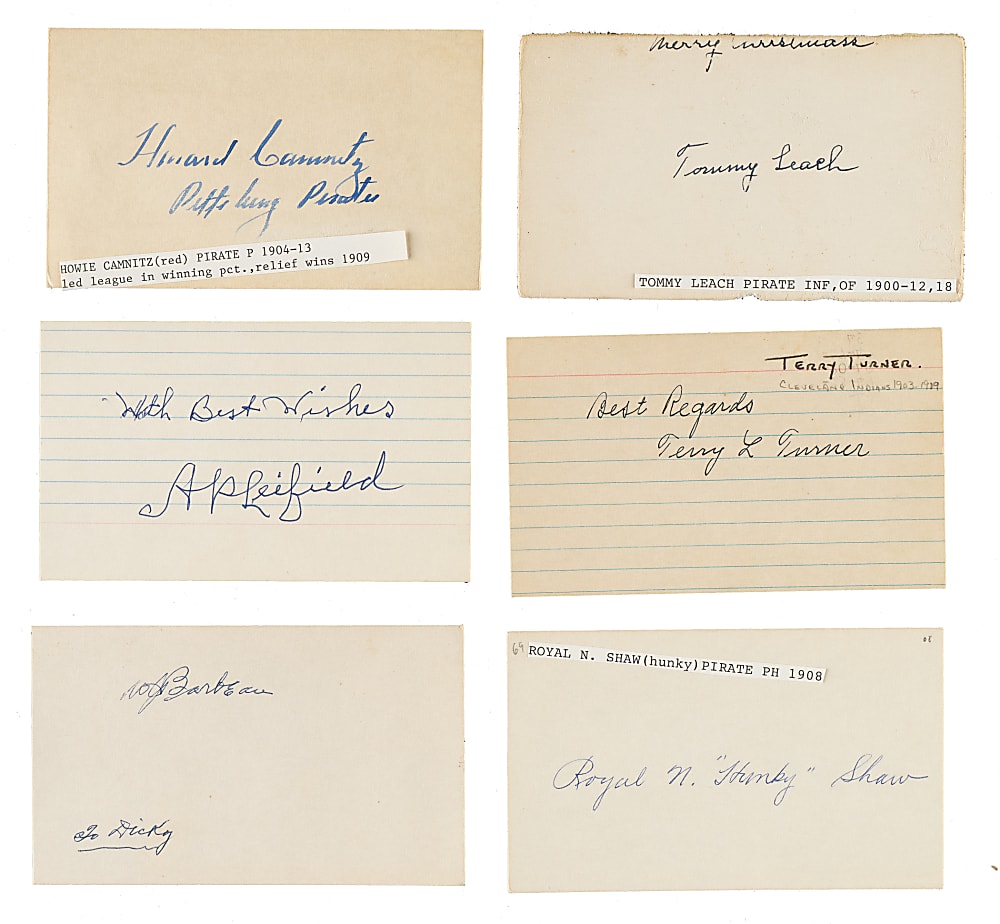 Howard Camnitz
Pittsburg Pirates
HOWIE CAMNITZ(red) PIRATE P 1904-13
led league in winning pct.,relief wins 1909
Merry Christmass
Tommy Leach
TOMMY LEACH PIRATE INF,OF 1900-12,18
With Best Wishes
A P Leifield
TERRY TURNER.
CLEVELAND INDIANS 1903-1919
Best Regards
Terry L Turner
W J Barbeau
To Dicky
69
08
ROYAL N. SHAW(hunky)PIRATE PH 1908
Royal N. "Hunky" Shaw